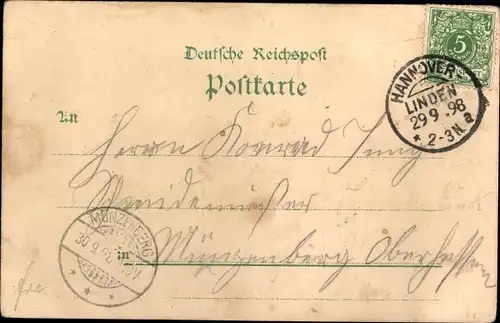 Deutsche Reichspost
Postkarte
5
HANNOVER
LINDEN
29 9 .98
* 2-3N a
An
Herrn Konrad Jung
MÜNZENBERG
30.9
in Münzenberg Oberhessen